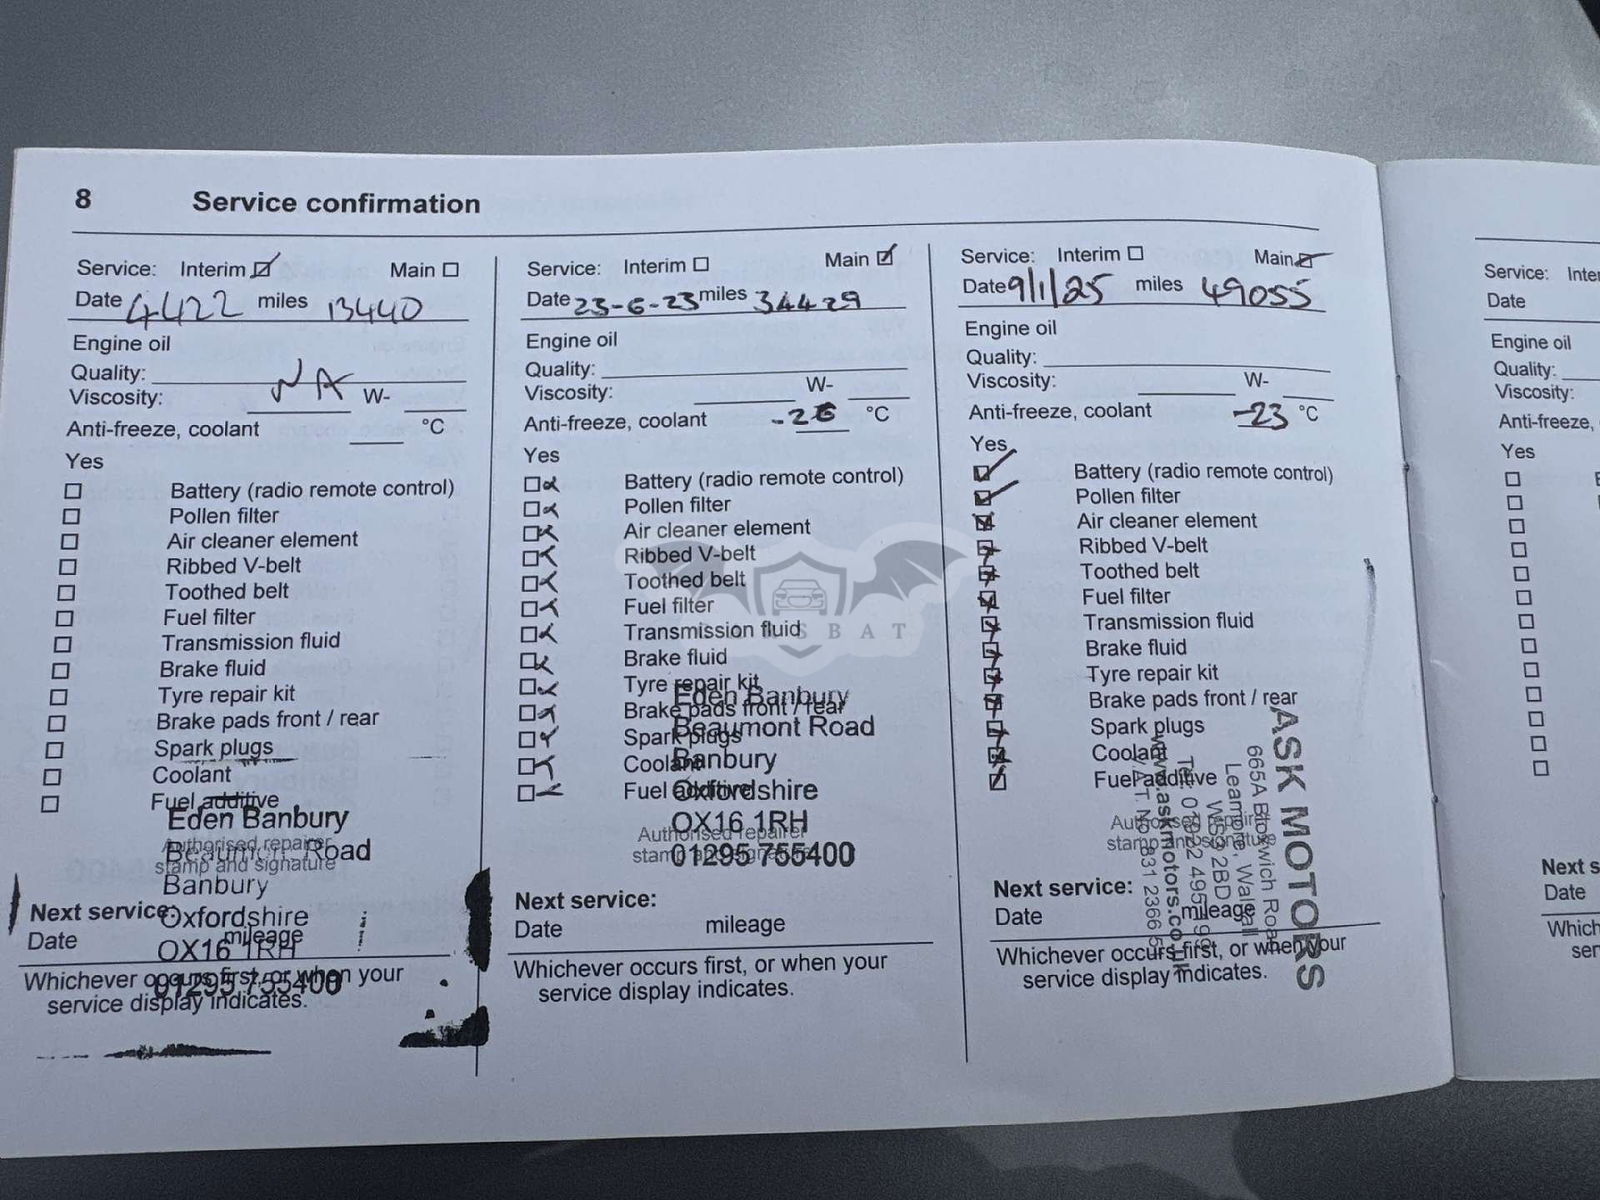 8 Service confirmation
Service: Interim Main
Date 4422 miles 13440
Engine oil
Quality:
NA
Viscosity: W-
Anti-freeze, coolant °C
Yes
Battery (radio remote control)
Pollen filter
Air cleaner element
Ribbed V-belt
Toothed belt
Fuel filter
Transmission fluid
Brake fluid
Tyre repair kit
Brake pads front / rear
Spark plugs
Coolant
Fuel additive
Eden Banbury
Authorised repairer
Beaumont Road
stamp and signature
Banbury
Next service:
Oxfordshire
Date mileage
OX16 1RH
Whichever occurs first, or when your
01295 755400
service display indicates.
Service: Interim Main
Date 23-6-23 miles 34429
Engine oil
Quality:
Viscosity: W-
Anti-freeze, coolant -26 °C
Yes
Battery (radio remote control)
Pollen filter
Air cleaner element
Ribbed V-belt
Toothed belt
Fuel filter
Transmission fluid
Brake fluid
Tyre repair kit
Eden Banbury
Brake pads front / rear
Beaumont Road
Spark plugs
Banbury
Coolant
Fuel additive
Oxfordshire
OX16 1RH
Authorised repairer
stamp and signature
01295 755400
Next service:
Date mileage
Whichever occurs first, or when your
service display indicates.
Service: Interim Main
Date 9/1/25 miles 49055
Engine oil
Quality:
Viscosity: W-
Anti-freeze, coolant -23 °C
Yes
Battery (radio remote control)
Pollen filter
Air cleaner element
Ribbed V-belt
Toothed belt
Fuel filter
Transmission fluid
Brake fluid
Tyre repair kit
Brake pads front / rear
Spark plugs
Coolant
Fuel additive
Authorised repairer
stamp and signature
ASK MOTORS
665A Bloxwich Road
Leamore, Walsall
WS3 2BD
www.askmotors.co.uk
Next service:
Date mileage
Whichever occurs first, or when your
service display indicates.
Service:
Date
Engine oil
Quality:
Viscosity:
Anti-freeze,
Yes
Date